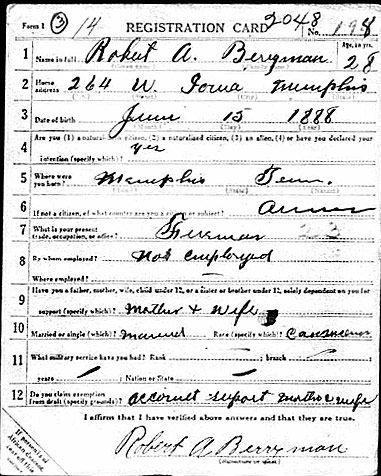 Form 1 3 14 REGISTRATION CARD 2048 No. 198
1 Name in full Robert A. Berryman Age, in yrs. 28
2 Home address 264 W. Iowa Memphis
3 Date of birth June 15 1888
4 Are you (1) a natural-born citizen, (2) a naturalized citizen, (3) an alien, (4) or have you declared your
intention (specify which)? Yes
5 Where were you born? Memphis Tenn.
6 If not a citizen, of what country are you a citizen or subject?
7 What is your present trade, occupation, or office? Fireman 23
8 By whom employed? Not employed
Where employed?
9 Have you a father, mother, wife, child under 12, or a sister or brother under 12, solely dependent on you for
support (specify which)? Mother + wife
10 Married or single (which)? Married Race (specify which)? Caucasian
11 What military service have you had? Rank branch
years Nation or State
12 Do you claim exemption from draft (specify grounds)? account support mother & wife
I affirm that I have verified above answers and that they are true.
Robert A Berryman
If person is of African descent